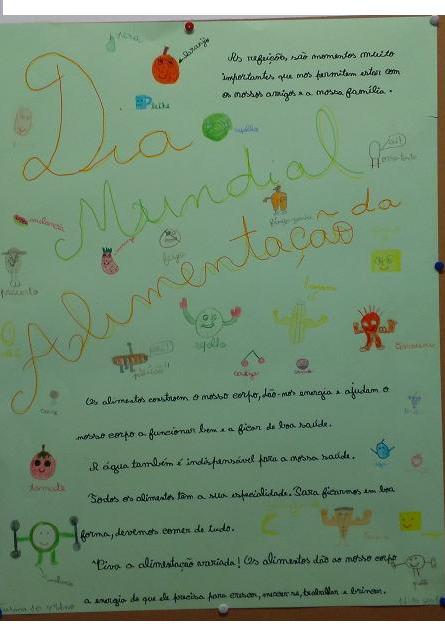 pêra
laranja
As refeições são momentos muito
importantes que nos permitem estar com
os nossos amigos e a nossa família.
leite
repolho
Dia
Mundial
da
Alimentação
melancia
feijão
presunto
repolho
cereja
Os alimentos constroem o nosso corpo, dão-nos energia e ajudam o
nosso corpo a funcionar bem e a ficar de boa saúde.
A água também é indispensável para a nossa saúde.
tomate
Todos os alimentos têm a sua especialidade. Para ficarmos em boa
forma, devemos comer de tudo.
"Viva a alimentação variada! Os alimentos dão ao nosso corpo
a energia de que ele precisa para crescer, mexer-se, trabalhar e brincar.